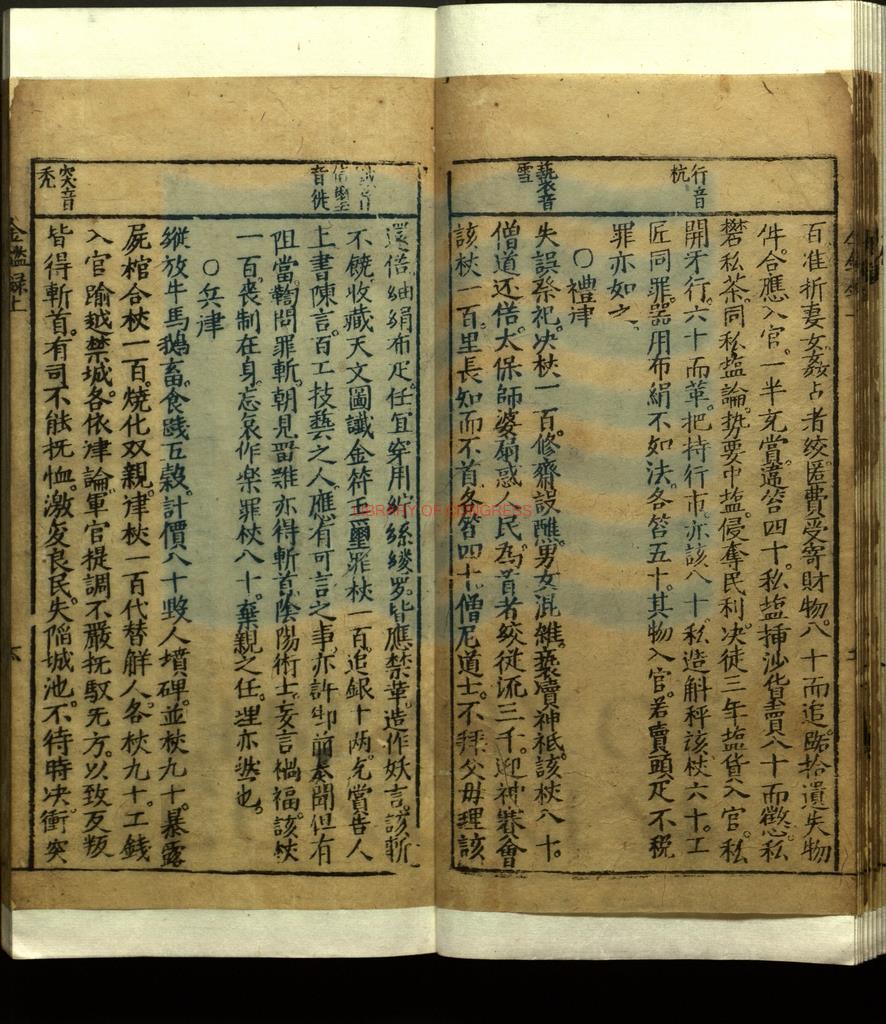 行音
杭
褻音
雪
百准折妻女姦占者絞匿費受寄財物八十而追路拾遺失物
件合應入官一半充賞違笞四十私塩揷沙貨賣八十而懲私
礬私茶同私塩論势要中塩侵奪民利决徒三年塩貨入官私
開牙行六十而革把持行市亦該八十私造斛秤該杖六十工
匠同罪器用布絹不如法各笞五十其物入官若賣頭疋不税
罪亦如之
○禮律
失誤祭祀决杖一百修齋設醮男女混雜褻瀆神祗該杖八十
僧道还俗太保師婆扇惑人民為首者絞從流三千迎神賽會
該杖一百里長知而不首各笞四十僧尼道士不拜父母理該
音徙
突音
禿
還俗紬絹布疋任宜穿用紵絲綾罗皆應禁革造作妖言該斬
不饒收藏天文圖讖金符玉璽罪杖一百追銀十两充賞告人
上書陳言百工技藝之人應有可言之事亦許御前奏聞但有
阻當鞫問罪斬朝見畱難亦得斬首陰陽術士妄言禍福該杖
一百喪制在身忘哀作樂罪杖八十棄親之任理亦然也
○兵律
縱放牛馬鵝畜食踐五穀計價八十毀人墳碑並杖九十暴露
屍棺合杖一百燒化双親律杖一百代替觧人各杖九十工錢
入官踰越禁城各依律論軍官提調不嚴抚馭无方以致反叛
皆得斬首有司不能抚恤激変良民失陷城池不待時决衝突
金鑑錄上
LIBRARY OF CONGRESS